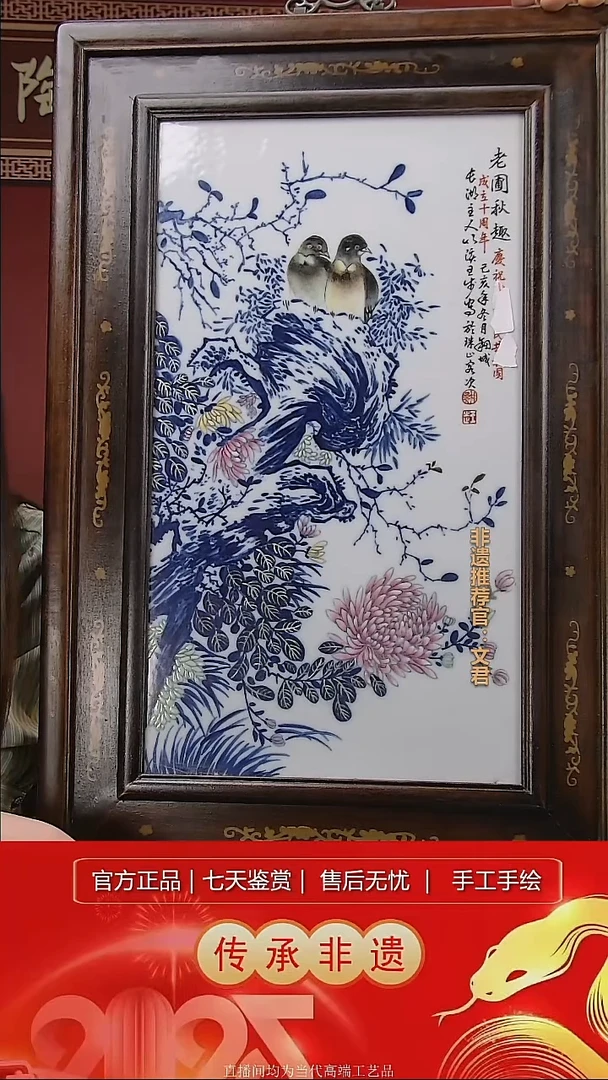 陶
老圃秋趣 慶祝
成立十周年 己亥年冬月翔城
长湖主人
非遗推荐官：文君
官方正品 | 七天鉴赏 | 售后无忧 | 手工手绘
传承非遗
2025
直播间均为当代高端工艺品